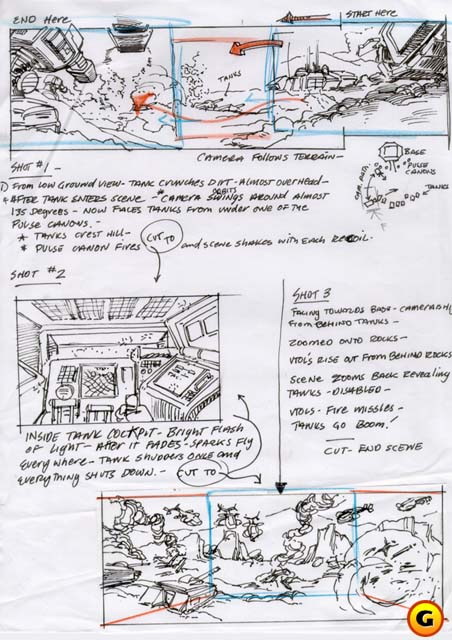 END Here
START Here
TANKS
CAMERA FOLLOWS TERRAIN-
BASE
PULSE CANONS
TANKS
SHOT #1-
FROM LOW GROUND VIEW- TANK CRUNCHES DIRT- ALMOST OVERHEAD-
ORBITS
AFTER TANK ENTERS SCENE - CAMERA SWINGS AROUND ALMOST
135 DEGREES - NOW FACES TANKS FROM UNDER ONE OF THE
PULSE CANONS.
* TANKS CREST HILL-
* PULSE CANON FIRES CUT TO and SCENE SHAKES WITH EACH RECOIL.
SHOT #2
SHOT 3
FACING TOWARDS BASE- CAMERA IS
FROM BEHIND TANKS-
ZOOMED ONTO ROCKS-
VTOL'S RISE OUT FROM BEHIND ROCKS
SCENE ZOOMS BACK REVEALING
TANKS - DISABLED-
VTOLS- FIRE MISSLES-
TANKS GO BOOM!
CUT- END SCENE
INSIDE TANK COCKPIT- BRIGHT FLASH
OF LIGHT- AFTER IT FADES- SPARKS FLY
EVERYWHERE- TANK SHUDDERS ONCE and
EVERYTHING SHUTS DOWN.- CUT TO
G